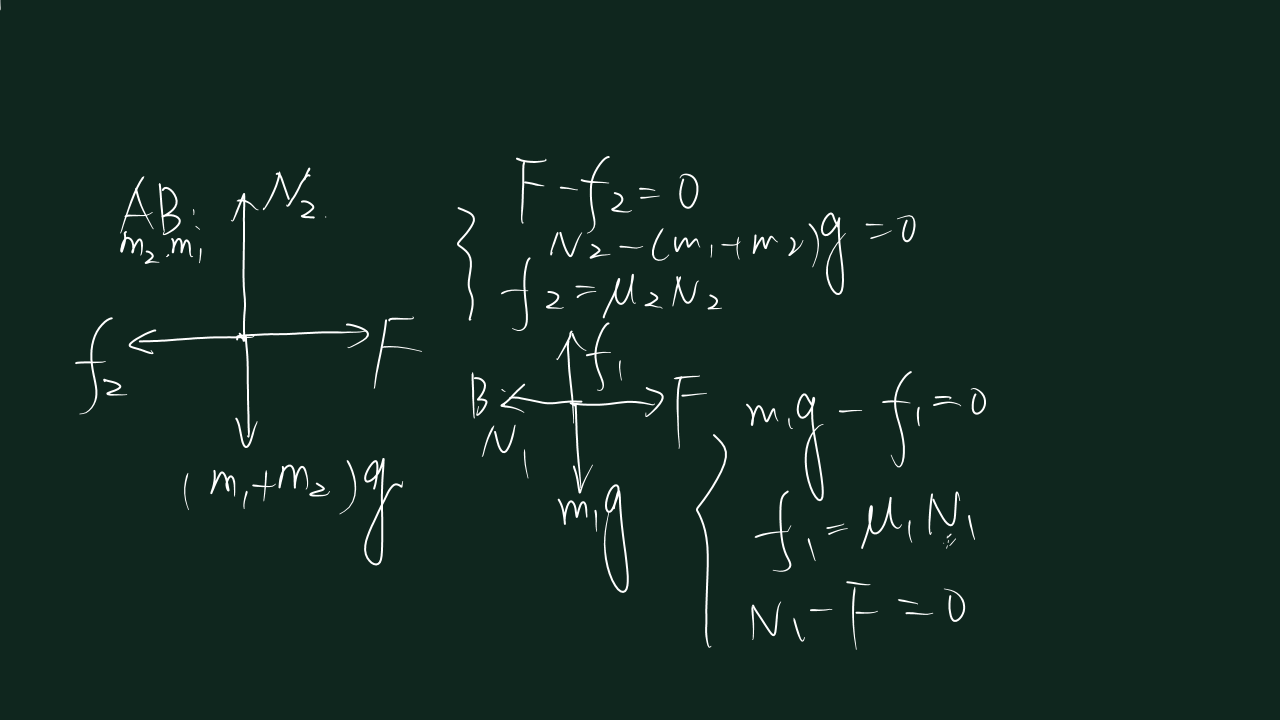 AB:
m₂ m₁
N₂
f₂
F
(m₁+m₂)g
F-f₂=0
N₂-(m₁+m₂)g=0
f₂=μ₂N₂
B
f₁
N₁
F
m₁g
m₁g-f₁=0
f₁=μ₁N₁
N₁-F=0